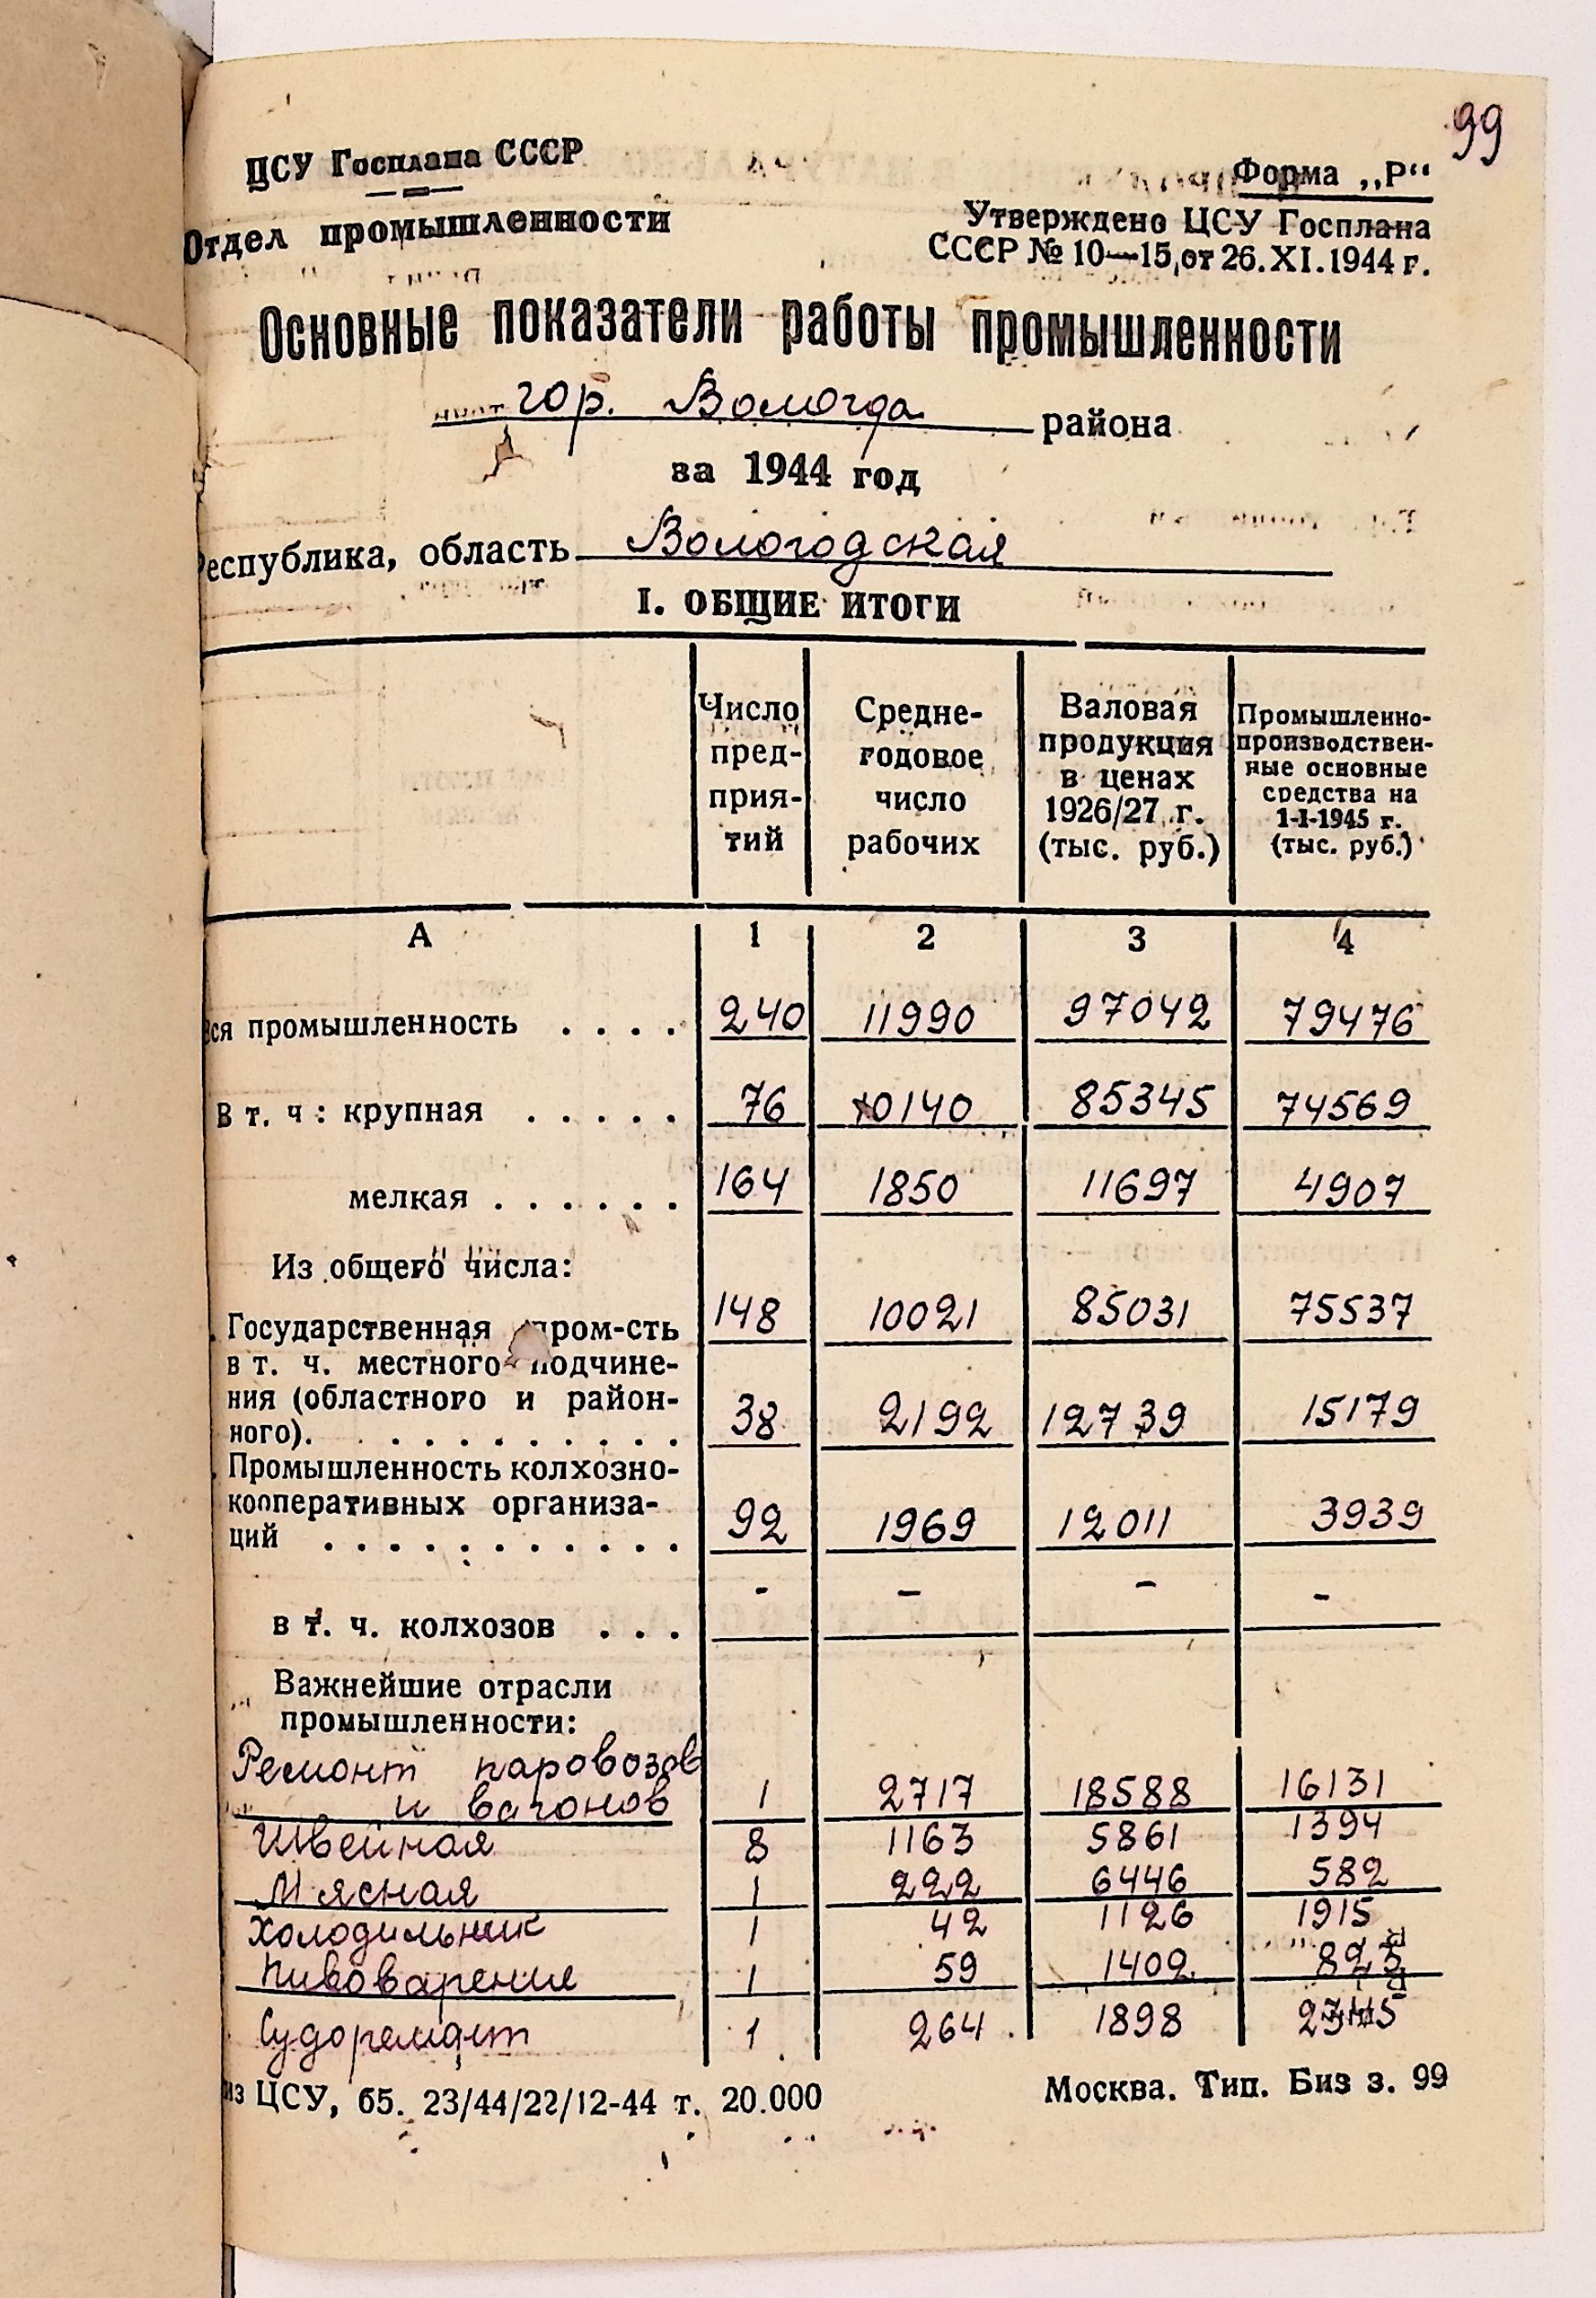 99
ЦСУ Госплана СССР
Форма „Р“
Отдел промышленности
Утверждено ЦСУ Госплана
СССР № 10—15, от 26.XI.1944 г.
Основные показатели работы промышленности
гор. Вологда района
за 1944 год
Республика, область Вологодская
I. ОБЩИЕ ИТОГИ
Число пред-прия-тий
Средне-годовое число рабочих
Валовая продукция в ценах 1926/27 г. (тыс. руб.)
Промышленно-производствен-ные основные средства на 1-I-1945 г. (тыс. руб.)
А 1 2 3 4
Вся промышленность . . . . 240 11990 97042 79476
В т. ч: крупная . . . . . 76 10140 85345 74569
мелкая . . . . . . 164 1850 11697 4907
Из общего числа:
Государственная пром-сть 148 10021 85031 75537
в т. ч. местного подчине-
ния (областного и район-
ного). . . . . . . . . . . 38 2192 12739 15179
Промышленность колхозно-
кооперативных организа-
ций . . . . . . . . . . . 92 1969 12011 3939
в т. ч. колхозов . . . - - - -
Важнейшие отрасли
промышленности:
Ремонт паровозов
и вагонов 1 2717 18588 16131
Швейная 8 1163 5861 1394
Мясная 1 222 6446 582
Холодильник 1 42 1126 1915
Пивоварение 1 59 1402
Судоремонт 1 264 1898
из ЦСУ, б5. 23/44/22/12-44 т. 20.000
Москва. Тип. Биз з. 99